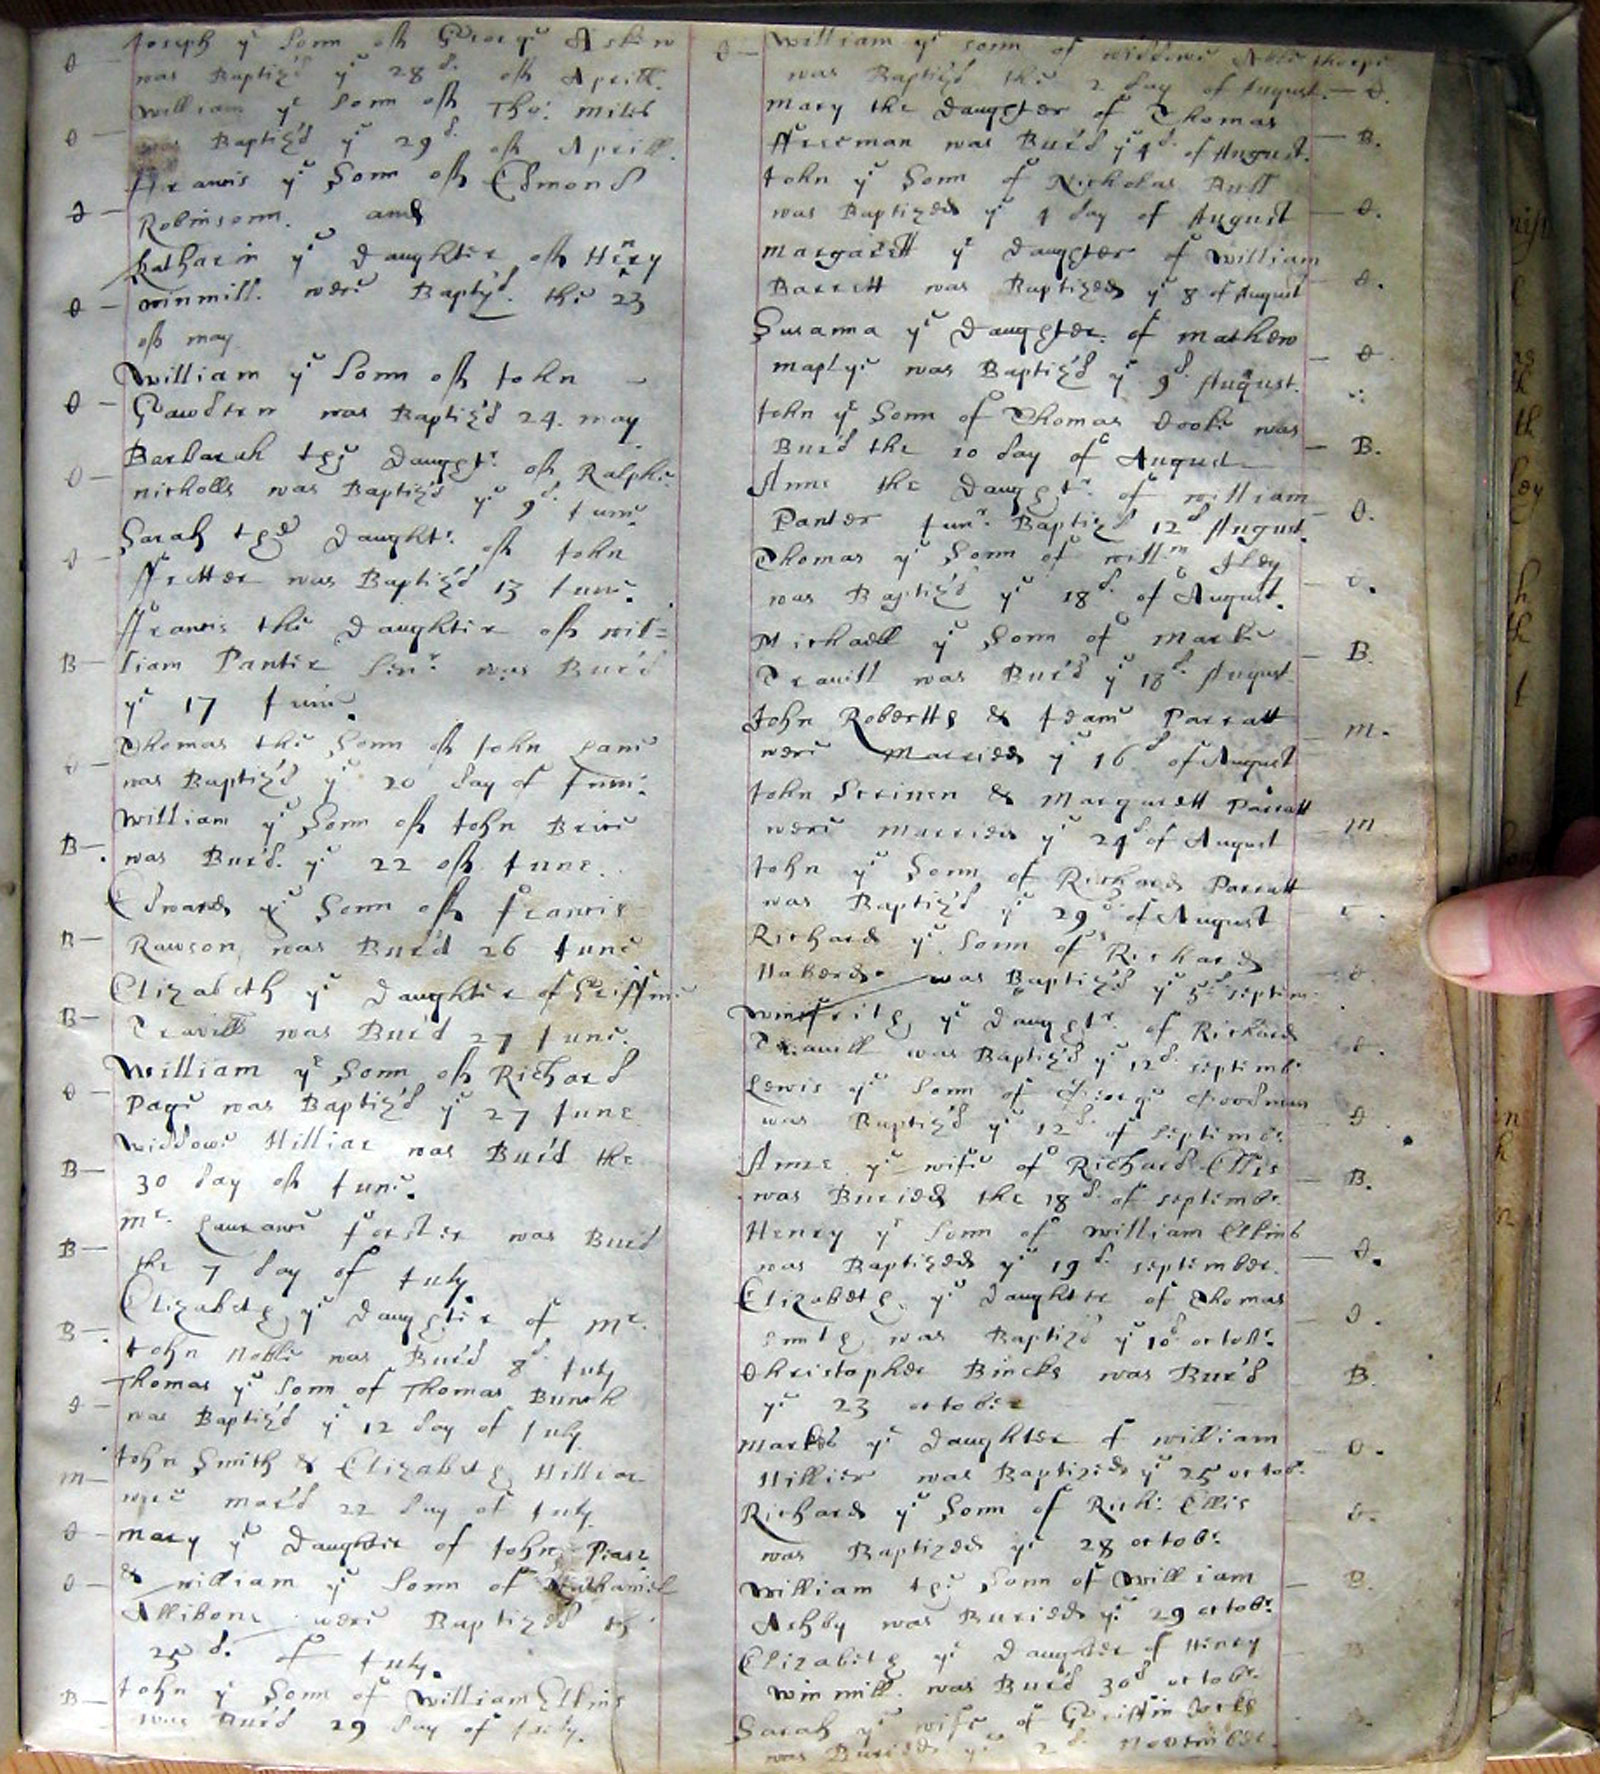 Joseph ye Sonn off George Askew
was Baptiz'd ye 28d. off Aprill.
William ye Sonn off Tho: Miles
was Baptiz'd ye 29d. off Aprill.
ffrancis ye Sonn off Edmond
Robinsonn. and
Katharin ye Daughter off Henry
winmill. were Baptz'd. the 23
off may
William ye Sonn off John
Gawdern was Baptiz'd 24. may
Barbarah the Daughtr. off Ralphe
nicholls was Baptiz'd ye 9d. June
Sarah the Daughtr. off John
ffretter was Baptiz'd 13 June.
ffrancis the Daughter off wil=
B liam Panter Senr. was Bur'd
ye 17 June.
Thomas the Sonn off John Lane
was Baptiz'd ye 20 day of June.
William ye Sonn off John Brice
B was Bur'd. ye 22 off June.
Edward ye Sonn off francis
B Rawson was Bur'd 26 June
Elizabeth ye Daughter of Griffin
B Travill was Bur'd 27 June.
William ye Sonn off Richard
Page was Baptiz'd ye 27 June
Widdowe Hilliar was Bur'd the
B 30 day off June.
Mr. Laurance forster was Bur'd
B the 7 day of July.
Elizabeth ye Daughter of Mr.
B John Noble was Bur'd 8d July
Thomas ye Sonn of Thomas Bunch
was Baptiz'd ye 12 day of July
John Smith & Elizabeth Hilliar
m were mar'd 22 day of July
Mary ye Daughter of John
& william ye Sonn of Nathaniel
Allibone were Baptized th
25d. of July.
B John ye Sonn of William Elkins
was Bur'd 29 day of July.
William ye Sonn of widdowe
was Baptiz'd the 2 day of August.
Mary the Daughter of Thomas
ffreeman was Bur'd ye 4d. of August. B.
John ye Sonn of Nicholas Bull
was Baptized ye 4 day of August
Margarett ye Daughter of William
Barrett was Baptized ye 8 of August
Susanna ye Daughter of Mathew
maplye was Baptiz'd ye 9d. August.
John ye Sonn of Thomas Cooke was
Bur'd the 10 day of August B.
Anne the Daughtr. of william
Panter Junr. Baptiz'd 12d August.
Thomas ye Sonn of willm Iley
was Baptiz'd ye 18d. of August.
Michaell ye Sonn of Marke
Travill was Bur'd ye 18d. August B.
John Robertts & Jeane Parratt m.
were Married ye 16d of August
John Scriven & Margarett Parratt
were Married ye 24d of August m.
John ye Sonn of Richard Parratt
was Baptiz'd ye 29d of August
Richard ye Sonn of Richard
was Baptiz'd ye 5d septem:
Winifrith ye Daughtr. of Richard
Travill was Baptiz'd ye 12d. septembr.
Lewis ye Sonn of George Goodman
was Baptiz'd ye 12d. of septembr.
Anne ye wife of Richard Ellis
was Buried the 18d. of septembr. B.
Henry ye Sonn of William Elkins
was Baptized ye 19d. september.
Elizabeth ye Daughter of Thomas
Smith was Baptiz'd ye 10d. octobr.
Christopher Bincks was Bur'd B
ye 23 october
ye Daughter of william
Hillier was Baptized ye 25 octobr.
Richard ye Sonn of Rich: Ellis
was Baptized ye 28 octobr.
William the Sonn of William B.
Ashby was Buried ye 29 octobr.
Elizabeth ye Daughter of Henry B
Winmill. was Bur'd 30d octobr.
Sarah ye wife of Griffin
was Buried ye 2d. november.